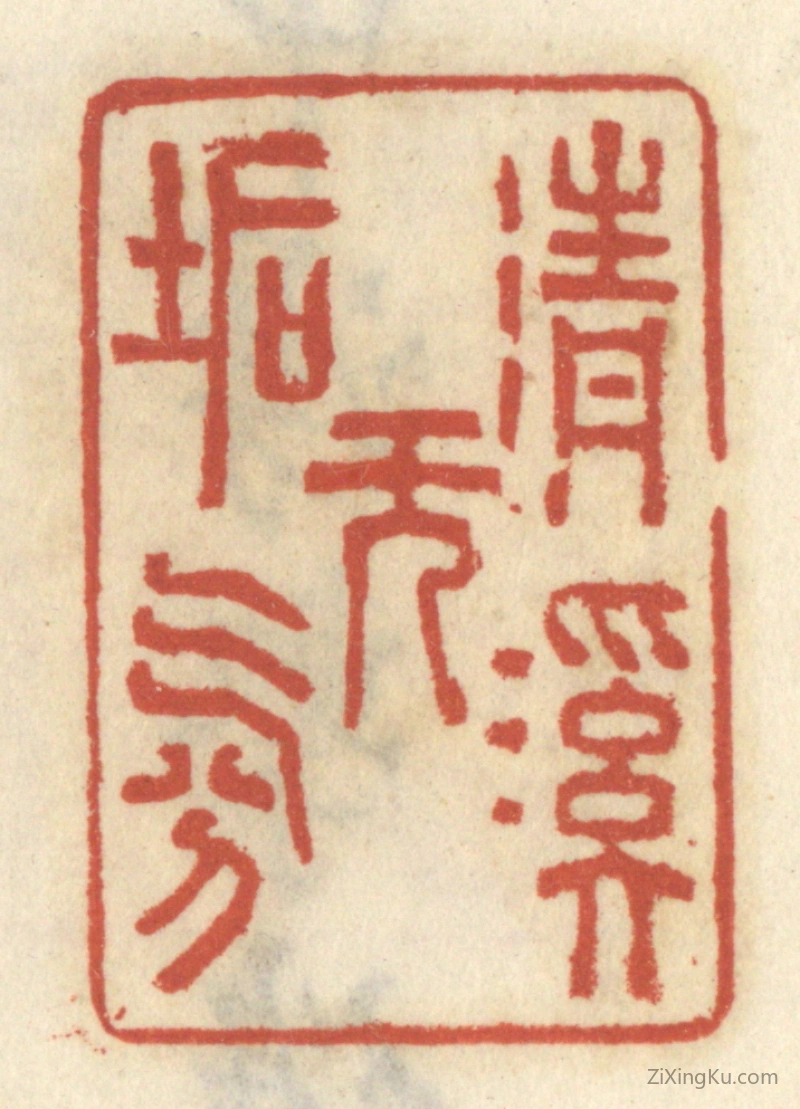 清溪
无
垢氛
ZiXingKu.com